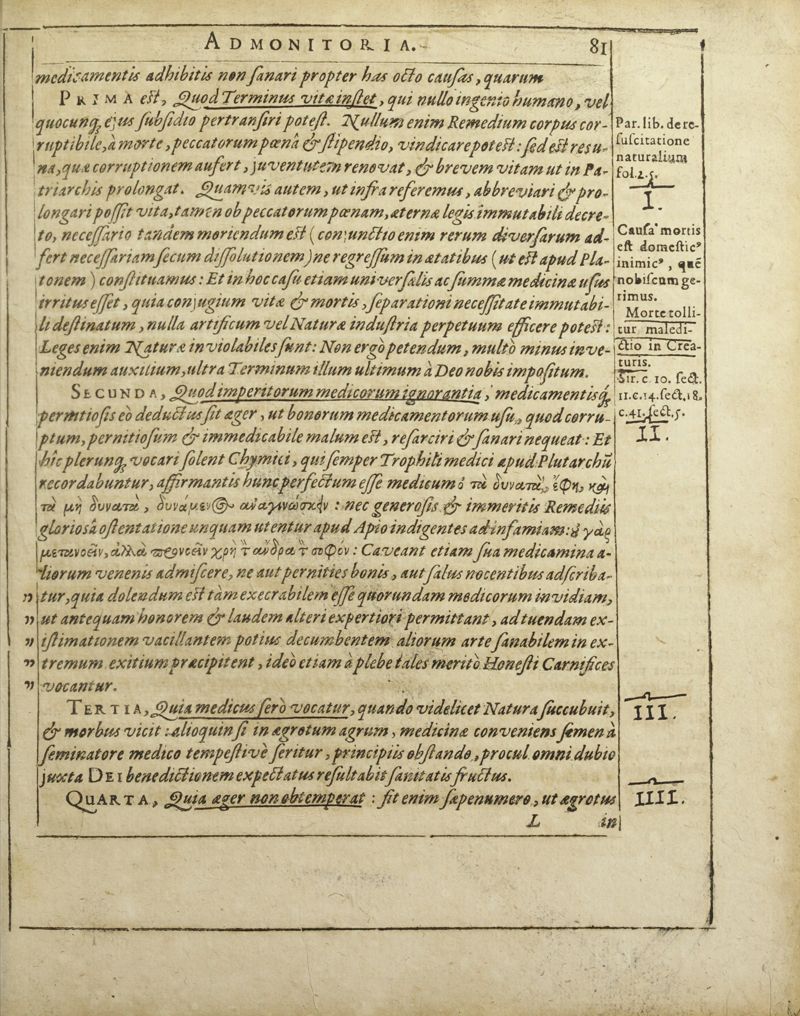 ADMONITORIA. 81
medicamentis adhibitis non ſanari propter has octo cauſas, quarum
PRIMA eſt, Quod Terminus vitæ inſtet, qui nullo ingenio humano, vel
quocunq, ejus ſubſidio pertranſiri poteſt. Nullum enim Remedium corpus cor-
ruptibile, à morte, peccatorum pœnâ & ſtipendio, vindicare poteſt: ſed eſt reſu-
na, quæ corruptionem aufert, juventutem renovat, & brevem vitam ut in Pa-
triarchis prolongat. Quamvis autem, ut infra referemus, abbreviari & pro-
longari poſſit vita, tamen ob peccatorum pœnam, æternæ legis immutabili decre-
to, neceſſario tandem moriendum eſt (conjunctio enim rerum diverſarum ad-
fert neceſſariam ſecum diſſolutionem) ne regreſſum in ætatibus (ut eſt apud Pla-
tonem) conſtituamus: Et in hoc caſu etiam univerſalis ac ſummæ medicinæ uſus
irritus eſſet, quia conjugium vitæ & mortis, ſeparationi neceſſitate immutabi-
li deſtinatum, nulla artificum vel Naturæ induſtria perpetuum efficere poteſt:
Leges enim Naturæ inviolabiles ſunt: Non ergò petendum, multò minus inve-
niendum auxilium, ultra Terminum illum ultimum à Deo nobis impoſitum.
SECUNDA, Quod imperitorum medicorum ignorantia, medicamentisq,
permtioſis eò deductus ſit æger, ut bonorum medicamentorum uſu, quod corru-
ptum, pernitioſum & immedicabile malum eſt, reſarciri & ſanari nequeat: Et
hic plerunq, vocari ſolent Chymici, qui ſemper Trophili medici apud Plutarchū
recordabuntur, affirmantis hunc perfectum eſſe medicum: τὰ δυνατὰ, ἔφη, καὶ
τὰ μὴ δυνατὰ, δυνάμεν@ ἀναγινώσκειν: nec generoſis & immeritis Remediis
glorioſâ oſtentatione unquam utentur apud Apio indigentes ad infamiam: γὰρ
μετανοεῖν, ἀλλὰ προνοεῖν χρὴ τ ἄνδρα τ σοφόν: Caveant etiam ſua medicamina a-
liorum venenis admiſcere, ne aut pernities bonis, aut ſalus nocentibus adſcriba-
" tur, quia dolendum eſt tàm execrabilem eſſe quorundam medicorum invidiam,
" ut antequam honorem & laudem alteri expertiori permittant, ad tuendam ex-
" iſtimationem vacillantem potius decumbentem aliorum arte ſanabilem in ex-
" tremum exitium præcipitent, ideò etiam à plebe tales meritò Honeſti Carnifices
" vocantur.
TERTIA, Quia medicus ſerò vocatur, quando videlicet Natura ſuccubuit,
& morbus vicit: alioquin ſi in ægrotum agrum, medicinæ conveniens ſemen à
ſeminatore medico tempeſtivè ſeritur, principiis obſtando, procul omni dubio
juxta DEI benedictionem expectatus reſultabit ſanitatis fructus.
QUARTA, Quia æger non obtemperat: fit enim ſæpenumero, ut ægrotus
L in
Par. lib. de re-
ſuſcitatione
naturalium
fol. 2. 5.
I.
Cauſa mortis
eſt domeſticꝰ
inimicꝰ, quę
nobiſcum ge-
rimus.
Morte tolli-
tur maledi-
ctio in Crea-
turis.
Sir. c. 10. ſect.
11. c. 14. ſect. 18.
c. 41. ſect. 5.
II.
III.
IIII.